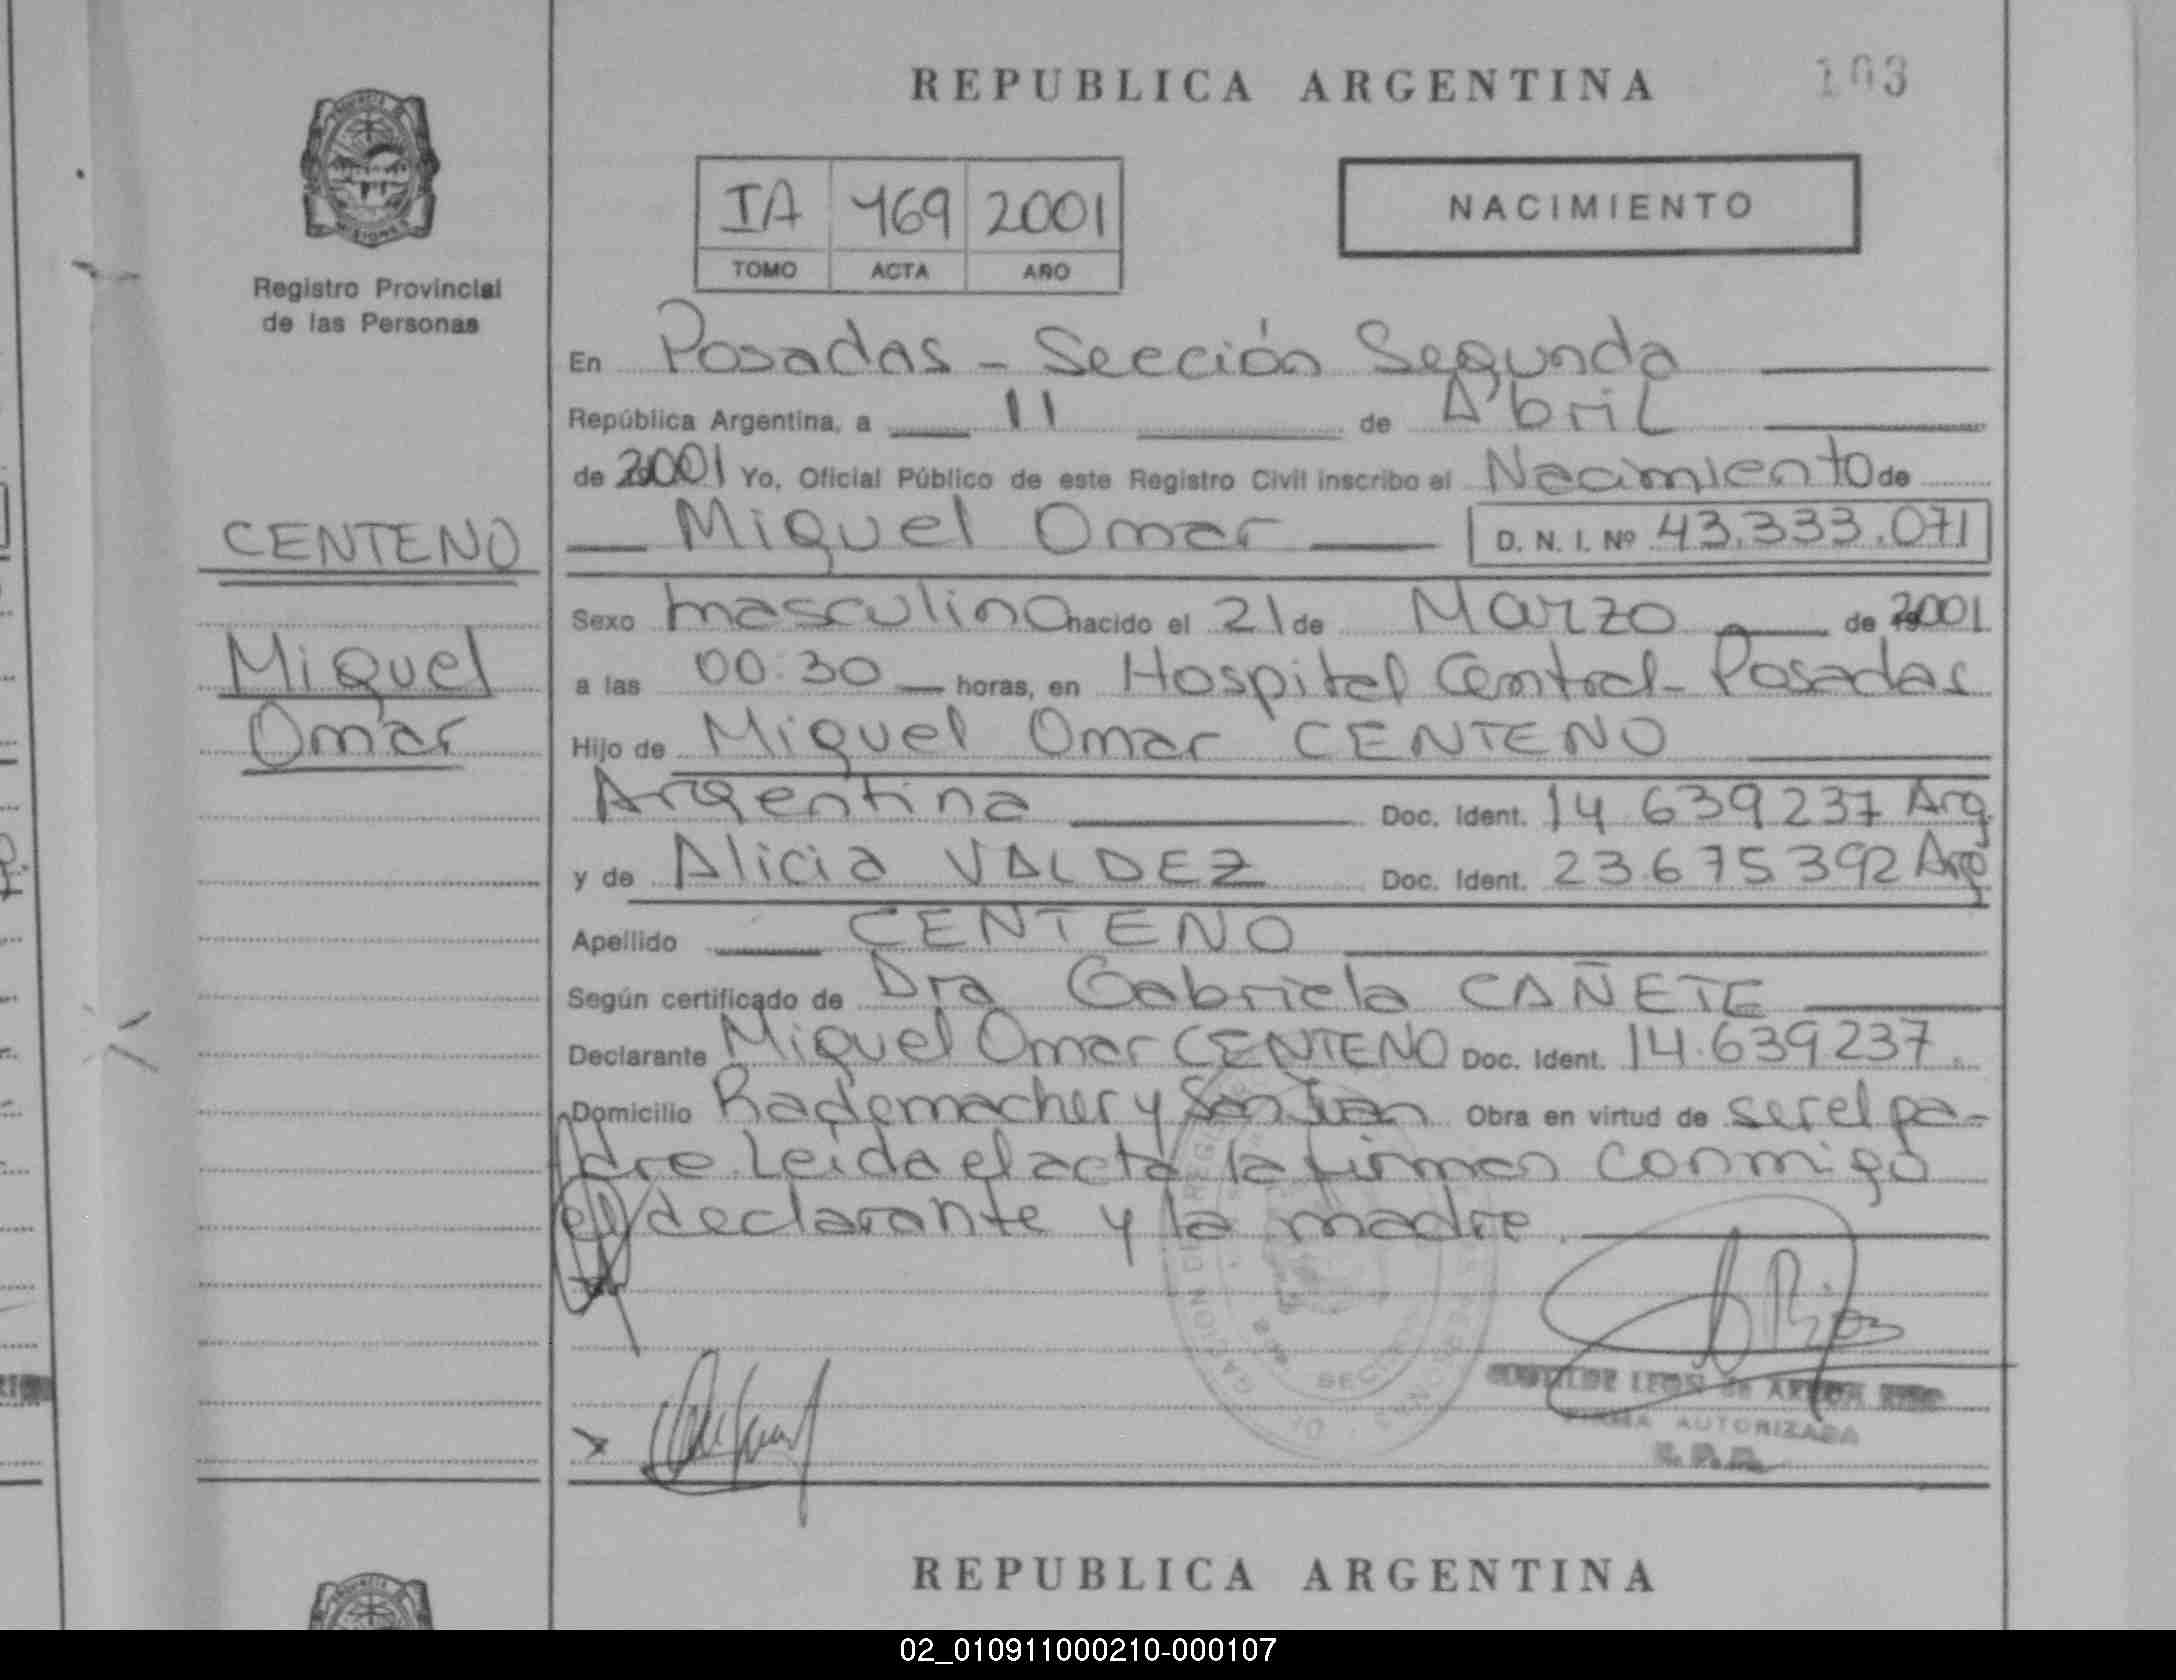 REPUBLICA ARGENTINA
103
IA 469 2001
TOMO ACTA AÑO
NACIMIENTO
MISIONES
Registro Provincial
de las Personas
CENTENO
Miguel
Omar
En Posadas - Sección Segunda
República Argentina, a 11 de Abril
de 2001 Yo, Oficial Público de este Registro Civil inscribo el Nacimiento de
Miguel Omar D. N. I. Nº 43.333.071
Sexo masculino nacido el 21 de Marzo de 2001
a las 00:30 horas, en Hospital Central - Posadas
Hijo de Miguel Omar CENTENO
Argentina Doc. Ident. 14 639237 Arg
y de Alicia VALDEZ Doc. Ident. 23.675392 Arg
Apellido CENTENO
Según certificado de Dra Gabriela CAÑETE
Declarante Miguel Omar CENTENO Doc. Ident. 14.639237.
Domicilio Rademacher y San Juan Obra en virtud de ser el pa-
dre. Leida el acta la firman conmigo
el declarante y la madre.
FIRMA AUTORIZADA
REPUBLICA ARGENTINA
02_010911000210-000107